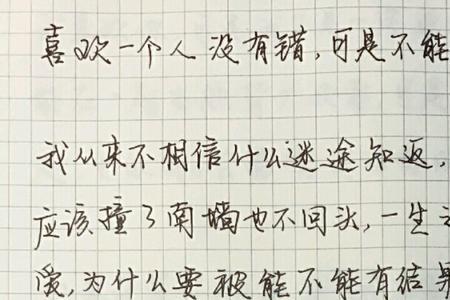 喜欢一个人没有错,可是不能
我从来不相信什么迷途知返,
应该撞了南墙也不回头,一生
爱,为什么要被能不能有结果